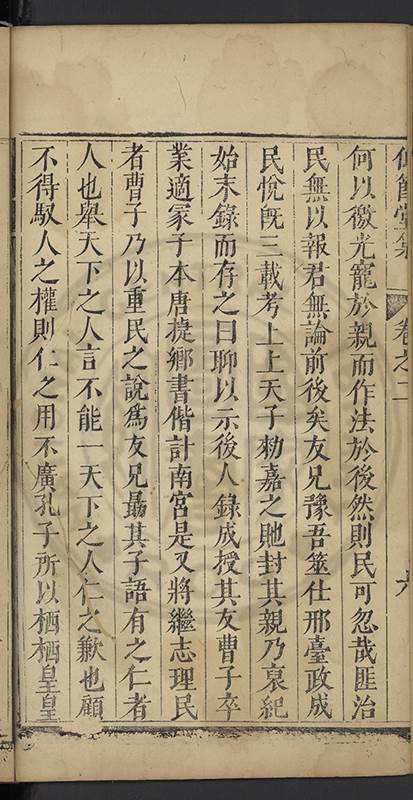 仰節堂集 卷之二 六
何以徼光寵於親而作法於後然則民可忽哉匪治
民無以報君無論前後矣友兄豫吾筮仕邢臺政成
民悅旣三載考上上天子勑嘉之貤封其親乃裒紀
始末錄而存之曰聊以示後人錄成授其友曹子卒
業適冢子本唐捷鄉書偕計南宮是又將繼志理民
者曹子乃以重民之說爲友兄勗其子語有之仁者
人也舉天下之人言不能一天下之人仁之歉也顧
不得馭人之權則仁之用不廣孔子所以栖栖皇皇